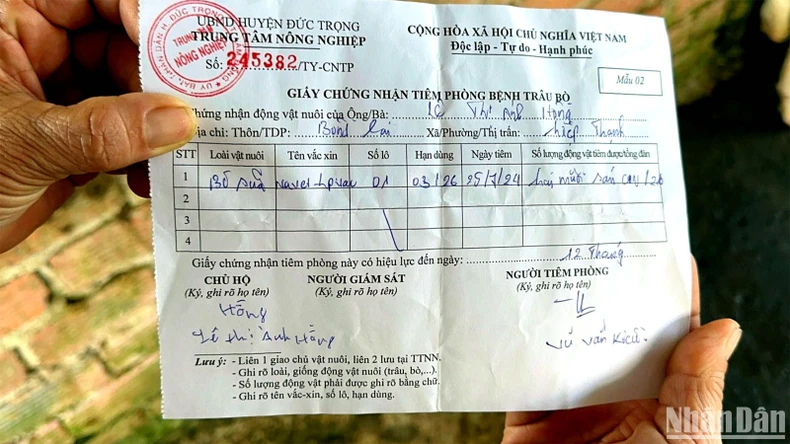 UBND HUYỆN ĐỨC TRỌNG
TRUNG TÂM NÔNG NGHIỆP
Số: 245382/TY-CNTP
CỘNG HÒA XÃ HỘI CHỦ NGHĨA VIỆT NAM
Độc lập - Tự do - Hạnh phúc
Mẫu 02
TRUNG TÂM
NÔNG NGHIỆP
GIẤY CHỨNG NHẬN TIÊM PHÒNG BỆNH TRÂU BÒ
Chứng nhận động vật nuôi của Ông/Bà: Lê Thị Anh Hồng
Địa chỉ: Thôn/TDP: Bồng Lai Xã/Phường/Thị trấn: Hiệp Thạnh
STT Loài vật nuôi Tên vắc xin Số lô Hạn dùng Ngày tiêm Số lượng động vật tiêm được/tổng đàn
1 Bò sữa 01 03/26 25/7/24 hai mươi sáu con/26
2
3
4
Giấy chứng nhận tiêm phòng này có hiệu lực đến ngày: 12 Tháng
CHỦ HỘ NGƯỜI GIÁM SÁT NGƯỜI TIÊM PHÒNG
(Ký, ghi rõ họ tên) (Ký, ghi rõ họ tên) (Ký, ghi rõ họ tên)
Hồng
Lê Thị Anh Hồng Vũ Văn
Lưu ý: - Liên 1 giao chủ vật nuôi, liên 2 lưu tại TTNN.
- Ghi rõ loài, giống động vật nuôi (trâu, bò,...).
- Số lượng động vật phải được ghi bằng chữ.
- Ghi rõ tên vắc-xin, số lô, hạn dùng.
NhanDân